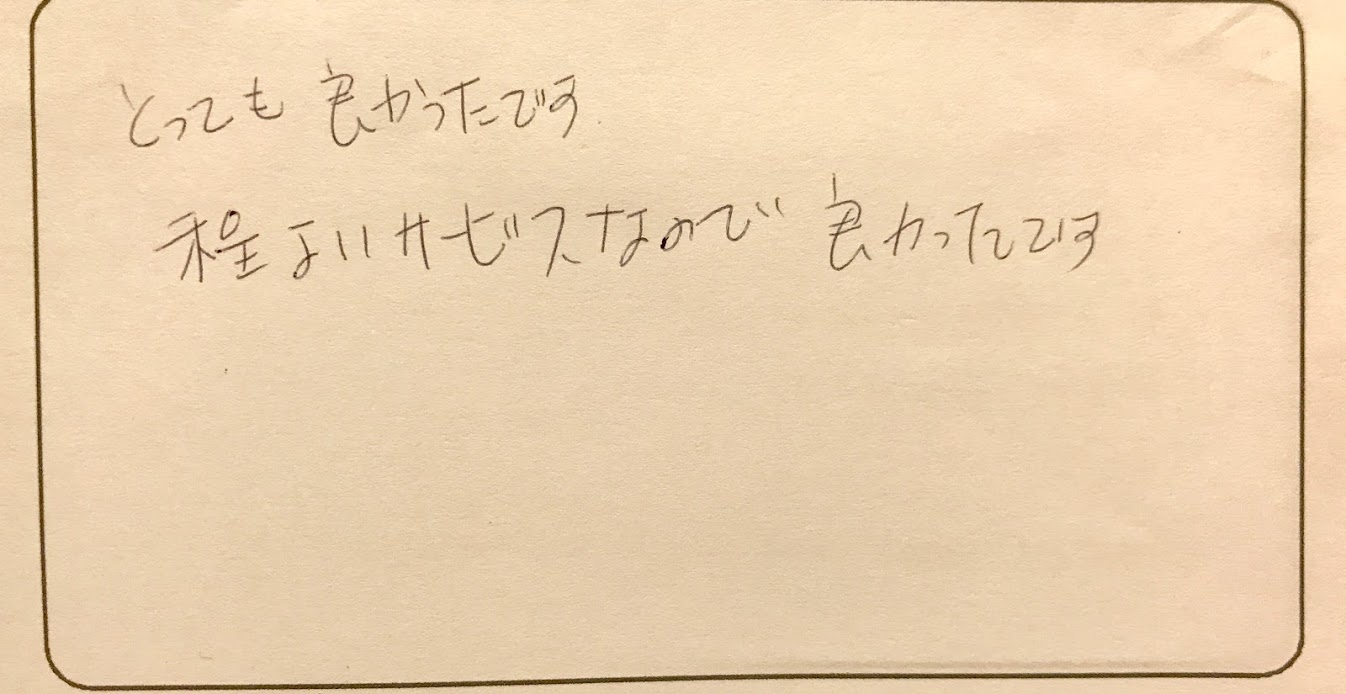 とっても良かったです
程よいサービスなので良かったです